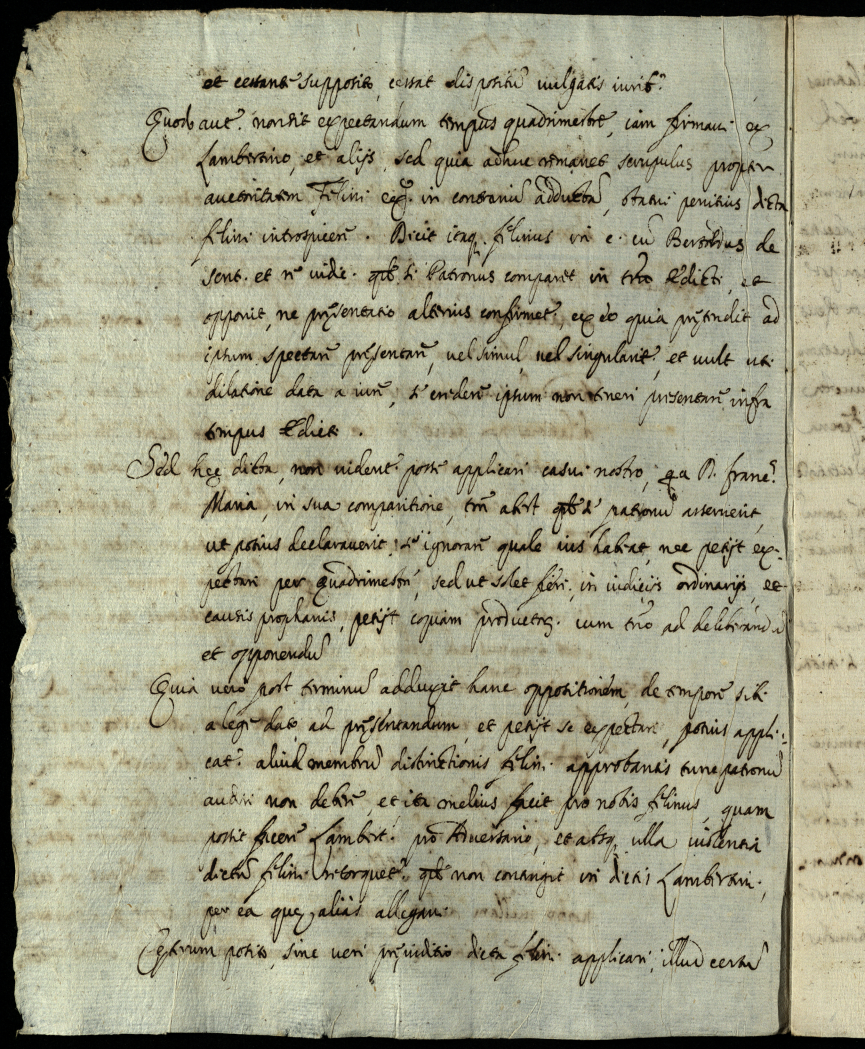 et cessante supposito, cessat dispositū vulgatis iurib.ˢ
Quod aut. non sit expectandum tempus quadrimestre, iam firmavi ex
Lambertino, et alijs, sed quia adhuc remanet scrupulus propter
auctoritatem Felini in contrariū adductā, statui penitius dicta
Felini introspicere. Dicit itaq. Felinus in c. cū Bertoldus de
sent. et re iudic. qd si Patronus comparet in tr̄o Edicti, et
opponit, ne pręsentatio alterius confirmet, ex eo quia prętendit ad
ipsum spectare pręsentare, vel simul, vel singularit, et vult uti
dilatione data a iure, credere ipsum non teneri presentare infra
tempus Edicti.
Sed hęc dicta, non vident posse applicari casui nostro, qa D. Franc.ˢ
Maria, in sua comparitione, tm̄ abest qd se patronū asseruerit,
ut potius declaraverit, se ignorare quale ius habeat, nec petijt ex-
pectari per quadrimestre, sed ut solet fieri in iudicijs ordinarijs, et
causis prophanis, petijt copiam productor. cum tr̄o ad deliberandū
et opponendū
Quia vero post terminū adduxit hanc oppositionem, de tempore sibi
a lege dato ad pręsentandum, et petijt se expectari, potius appli-
cat. aliud membrū distinctionis Felini approbantis tunc patronū
audiri non debere, et ita melius facit pro nobis Felinus, quam
possit facere Lambert. pro Adversario, et absq. ulla violentia
dictū Felini retorquet. qd non contingit in dictis Lambertini,
per ea quę alias allegavi.
Cęterum posito, sine veri pręiuditio dicta Felini applicari, illud certū